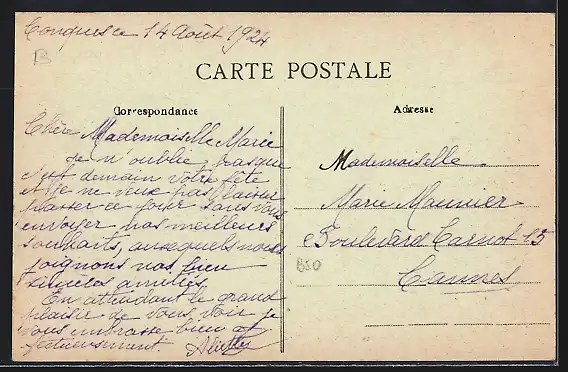 Conques le 14 Août 1924
B
CARTE POSTALE
Correspondance
Adresse
Chère Mademoiselle Marie
je n'oublie, pasque
c'est demain votre fête
et je ne veux pas laisser
passer ce jour sans vous
envoyer nos meilleurs
souhaits, auxequels nous
joignons nos bien
sincères amitiés.
En attendant le grand
plaisir de vous voir je
vous embrasse bien
Mademoiselle
Marie Maunier
Boulevard Carnot 15
Cannes
B50